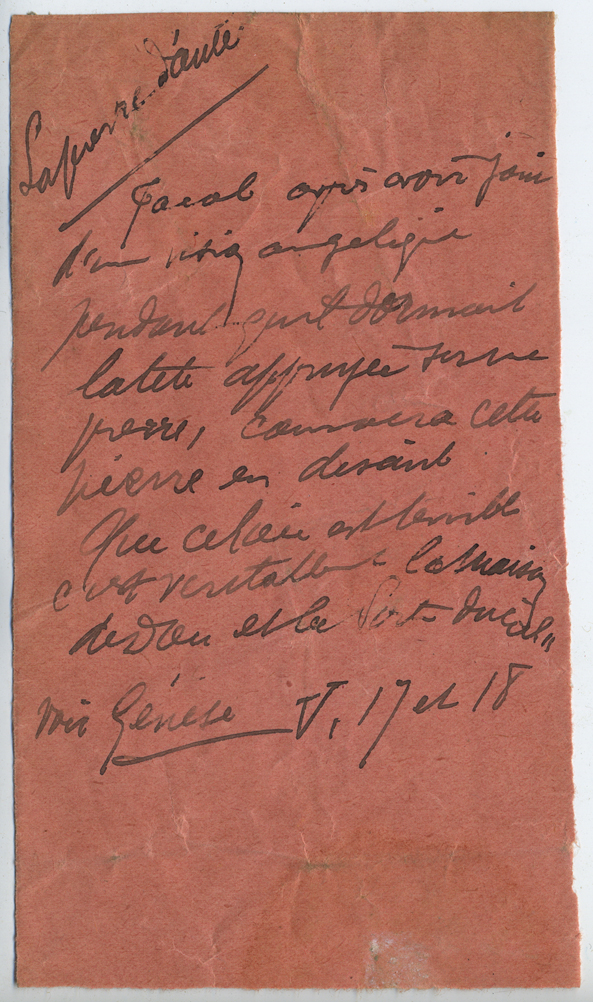 La pierre d'autel
Jacob après avoir joui
d'une vision angelique
pendant qu'il dormait
la tete appuyée sur une
pierre, consacra cette
pierre en disant
Que ce lieu est terrible
c'est veritablement la maison
de Dieu et la Porte du Ciel"
voir Génèse V, 17 et 18